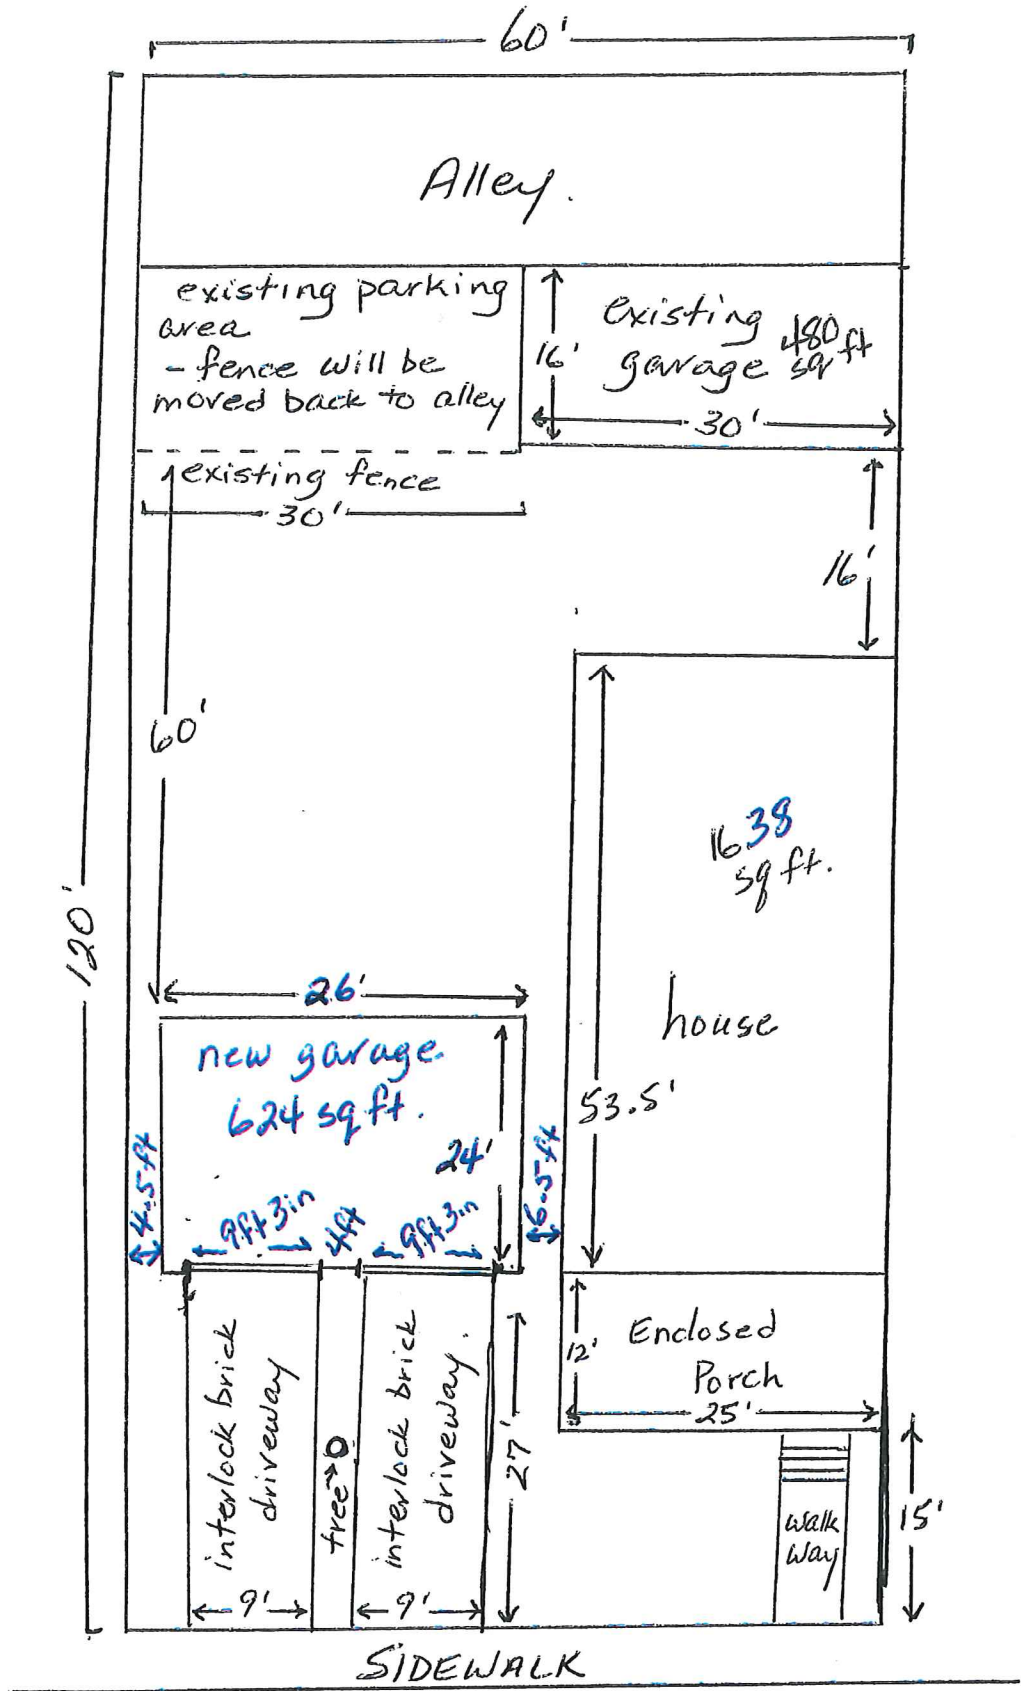 60'
Alley.
existing parking
area
- fence will be
moved back to alley
16'
existing
garage 480
sq ft
30'
existing fence
30'
16'
60'
120'
1638
sq ft.
house
53.5'
26'
new garage
624 sq ft.
24'
4.5 ft
6.5 ft
9ft 3in
4ft
9ft 3in
12'
Enclosed
Porch
25'
interlock brick
driveway
tree
interlock brick
driveway.
27'
walk
way
15'
9'
9'
SIDEWALK